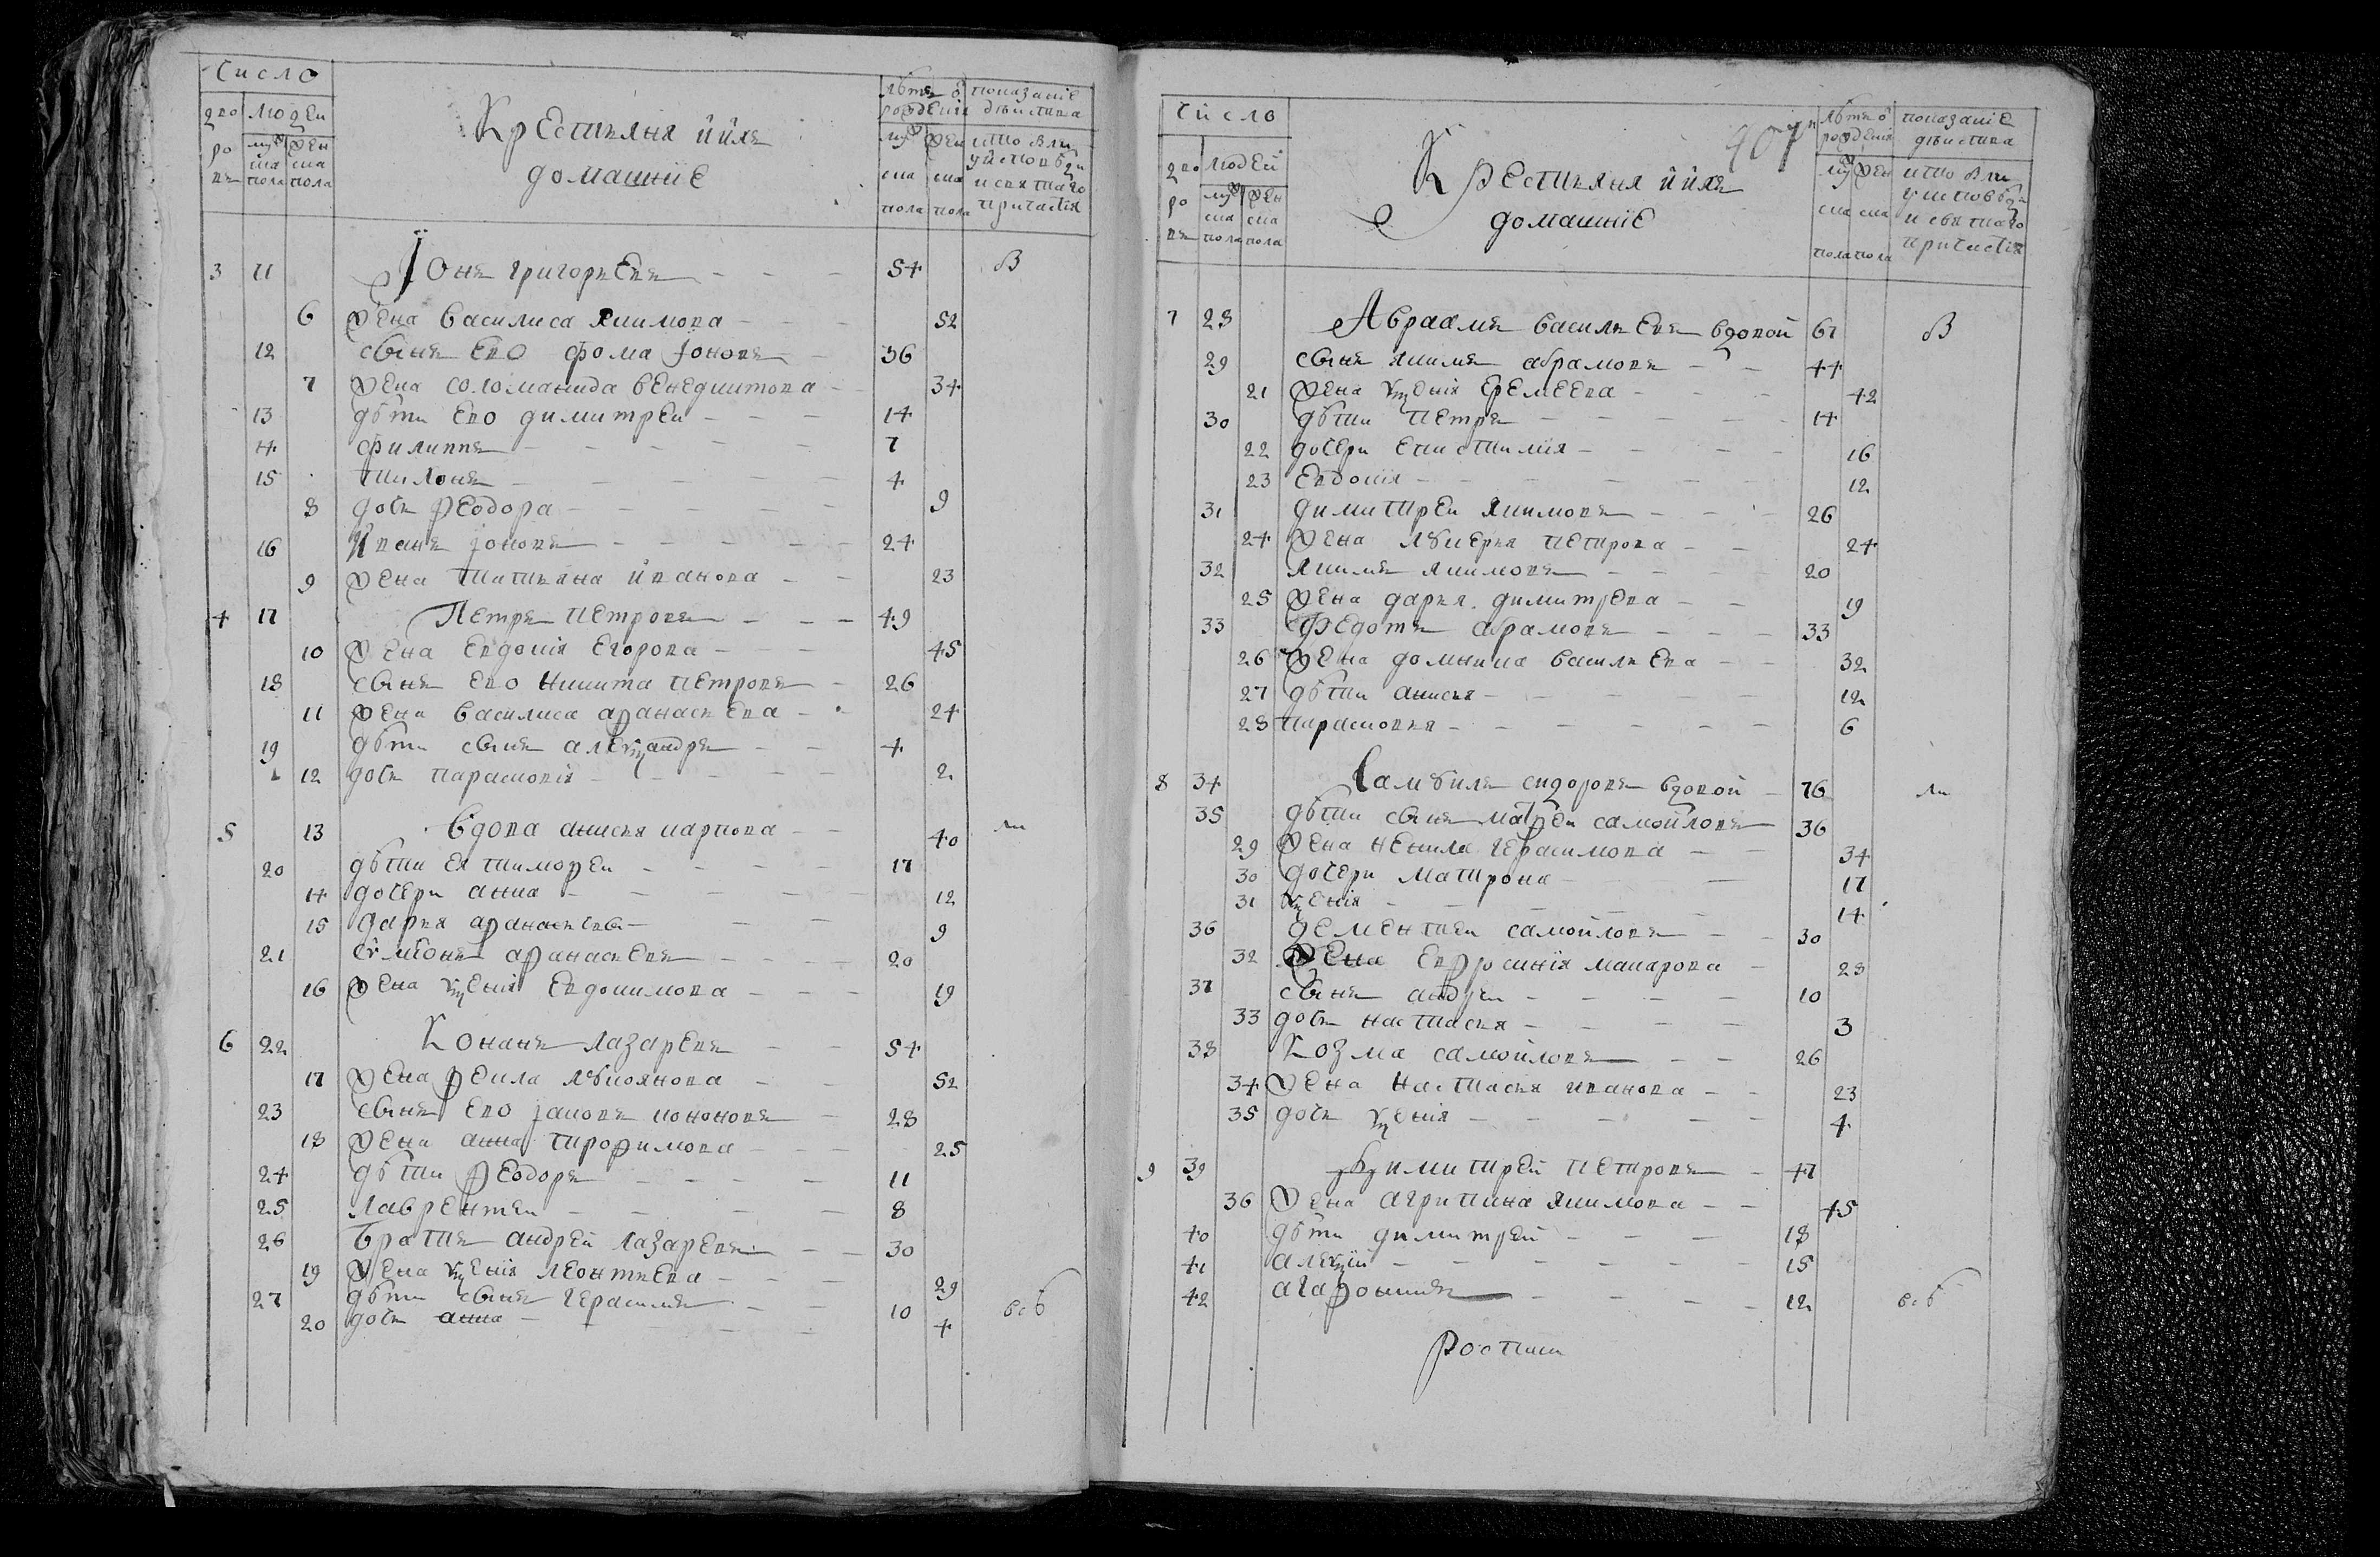 Число
дво ро въ
людей
муж ска пола
жен ска пола
Крестьяня и ихъ
домашніе
лѣтъ ѿ рожденія
муж ска пола
жен ска пола
показаніе действа
кто былъ у исповѣди и святаго причастія
3 11 Іонъ григорьевъ 54 В
6 жена василиса якимова 52
12 сынъ ево фома іоновъ 36
7 жена соломанида венедиктова 34
13 дѣти ево димитрей 14
14 филиппъ 7
15 тихонъ 4
8 дочь ѳеодора 9
16 Иванъ іоновъ 24
9 жена татьяна иванова 23
4 17 Петръ петровъ 49
10 жена евдокія егорова 45
18 сынъ ево никита петровъ 26
11 жена василиса аѳанасьева 24
19 дѣти сынъ алеѯандръ 4
12 дочь парасковія 2
5 13 Вдова анисья карпова 40
20 дѣти ея тимоѳей 17
14 дочери анна 12
15 дарья аѳанасьевы 9
21 сѵмеонъ аѳанасьевъ 20
16 жена ѯенія евдокимова 19
6 22 Кононъ лазаревъ 54
17 жена ѳекла лукоянова 52
23 сынъ ево іаковъ кононовъ 28
18 жена анна троѳимова 25
24 дѣти ѳеодоръ 11
25 лаврентей 8
26 Братъ андрей лазаревъ 30
19 жена ѯенія леонтьева 29
27 дѣти сынъ герасимъ 10
20 дочь анна 4
Число
дво ро въ
людей
муж ска пола
жен ска пола
Крестьяня и ихъ
домашніе
лѣтъ ѿ рожденія
муж ска пола
жен ска пола
показаніе действа
кто былъ у исповѣди и святаго причастія
7 28 Авраамъ васильевъ вдовой 67 В
29 сынъ якимъ абрамовъ 44
21 жена ѯенія еремеева 42
30 дѣти петръ 14
22 дочери епистимія 16
23 Евдокія 12
31 димитрей якимовъ 26
24 жена лукерья петрова 24
32 якимъ якимовъ 20
25 жена дарья димитрева 19
33 Федотъ абрамовъ 33
26 жена домника васильева 32
27 дѣти анисья 12
28 парасковья 6
8 34 Самуилъ сидоровъ вдовой 76
35 дѣти сынъ матѳей самойловъ 36
29 жена ненила герасимова 34
30 дочери матрона 17
31 ѯенія 14
36 дементей самойловъ 30
32 жена евѳросинія макарова 28
37 сынъ андрей 10
33 дочь настасья 3
38 Козма самойловъ 26
34 жена настасья иванова 23
35 дочь ѯенія 4
9 39 Димитрей петровъ 47
36 жена агрипина якимова 45
40 дѣти димитрей 18
41 алеѯій 15
42 агаѳонникъ 12